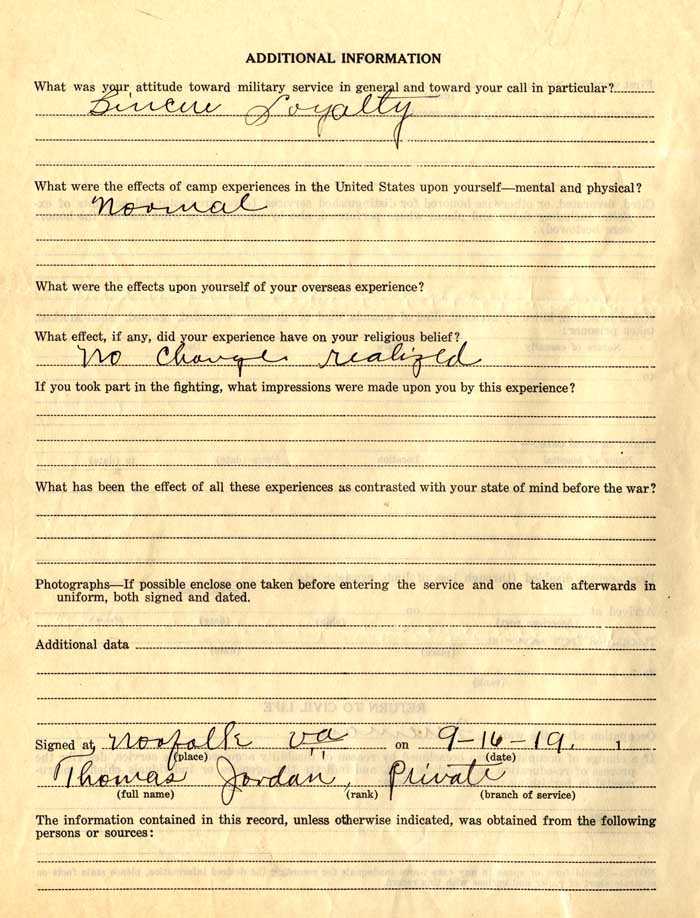 ADDITIONAL INFORMATION
What was your attitude toward military service in general and toward your call in particular?
Sincere Loyalty
What were the effects of camp experiences in the United States upon yourself—mental and physical?
Normal
What were the effects upon yourself of your overseas experience?
What effect, if any, did your experience have on your religious belief?
No change realized
If you took part in the fighting, what impressions were made upon you by this experience?
What has been the effect of all these experiences as contrasted with your state of mind before the war?
Photographs—If possible enclose one taken before entering the service and one taken afterwards in
uniform, both signed and dated.
Additional data
Signed at Norfolk Va on 9-16-19. 1
(place) (date)
Thomas Jordan, Private
(full name) (rank) (branch of service)
The information contained in this record, unless otherwise indicated, was obtained from the following
persons or sources: